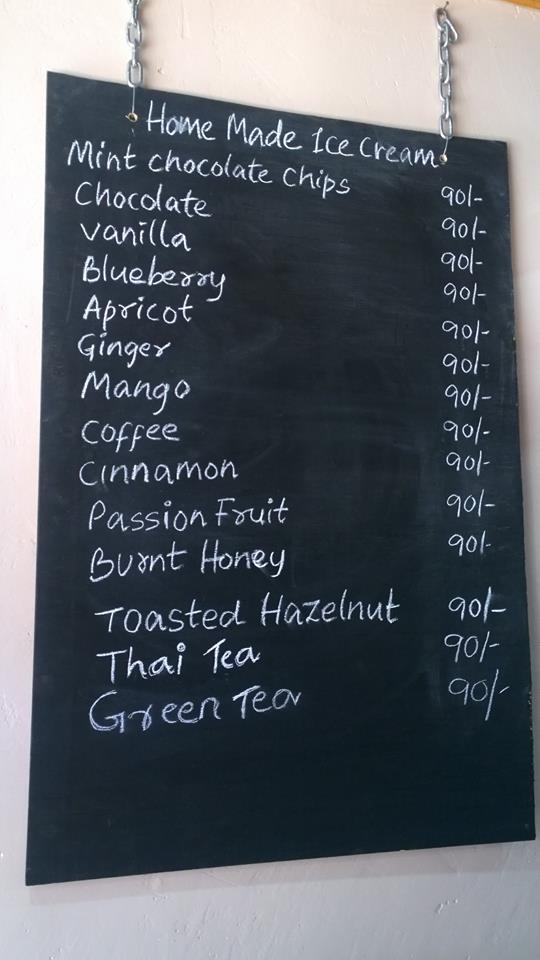 Home Made Ice Cream
Mint chocolate Chips 90/-
Chocolate 90/-
vanilla 90/-
Blueberry 90/-
Apricot 90/-
Ginger 90/-
Mango 90/-
Coffee 90/-
Cinnamon 90/-
Passion Fruit 90/-
Burnt Honey 90/-
Toasted Hazelnut 90/-
Thai Tea 90/-
Green Tea 90/-